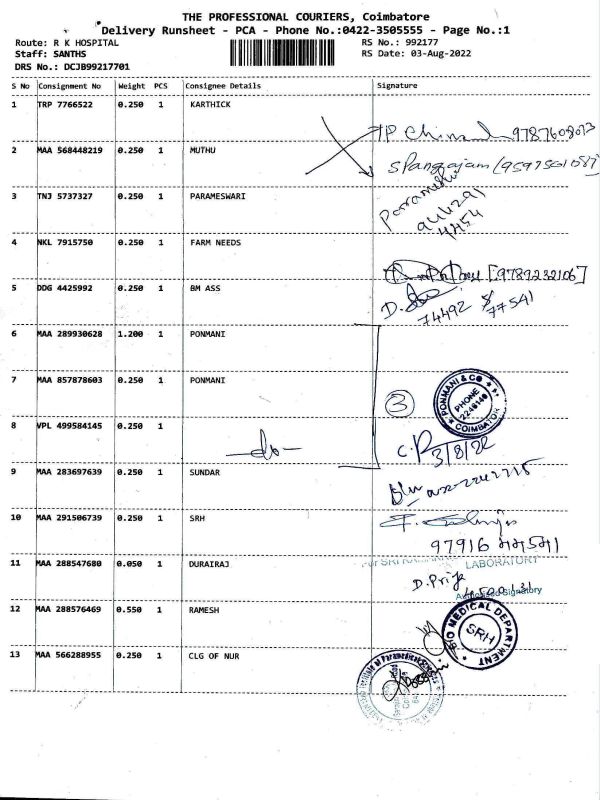 THE PROFESSIONAL COURIERS, Coimbatore
Delivery Runsheet - PCA - Phone No.:0422-3505555 - Page No.:1
Route: R K HOSPITAL RS No.: 992177
Staff: SANTHS RS Date: 03-Aug-2022
DRS No.: DCJB99217701
S No Consignment No Weight PCS Consignee Details Signature
1 TRP 7766522 0.250 1 KARTHICK
9787608073
2 MAA 568448219 0.250 1 MUTHU
S Pangajam
3 TNJ 5737327 0.250 1 PARAMESWARI
Parameswari
4454
4 NKL 7915750 0.250 1 FARM NEEDS
[9789232106]
5 DDG 4425992 0.250 1 BM ASS
D.
74492 77541
6 MAA 289930628 1.200 1 PONMANI
7 MAA 857878603 0.250 1 PONMANI
PONMANI & CO
PHONE
COIMBATORE
3
8 VPL 499584145 0.250 1
-do-
3/8/22
9 MAA 283697639 0.250 1 SUNDAR
10 MAA 291506739 0.250 1 SRH
97916
11 MAA 288547680 0.050 1 DURAIRAJ
LABORATORY
D. Priya
Authorised Signatory
12 MAA 288576469 0.550 1 RAMESH
BIO MEDICAL DEPARTMENT
SRH
13 MAA 566288955 0.250 1 CLG OF NUR
Institute of Paramedical